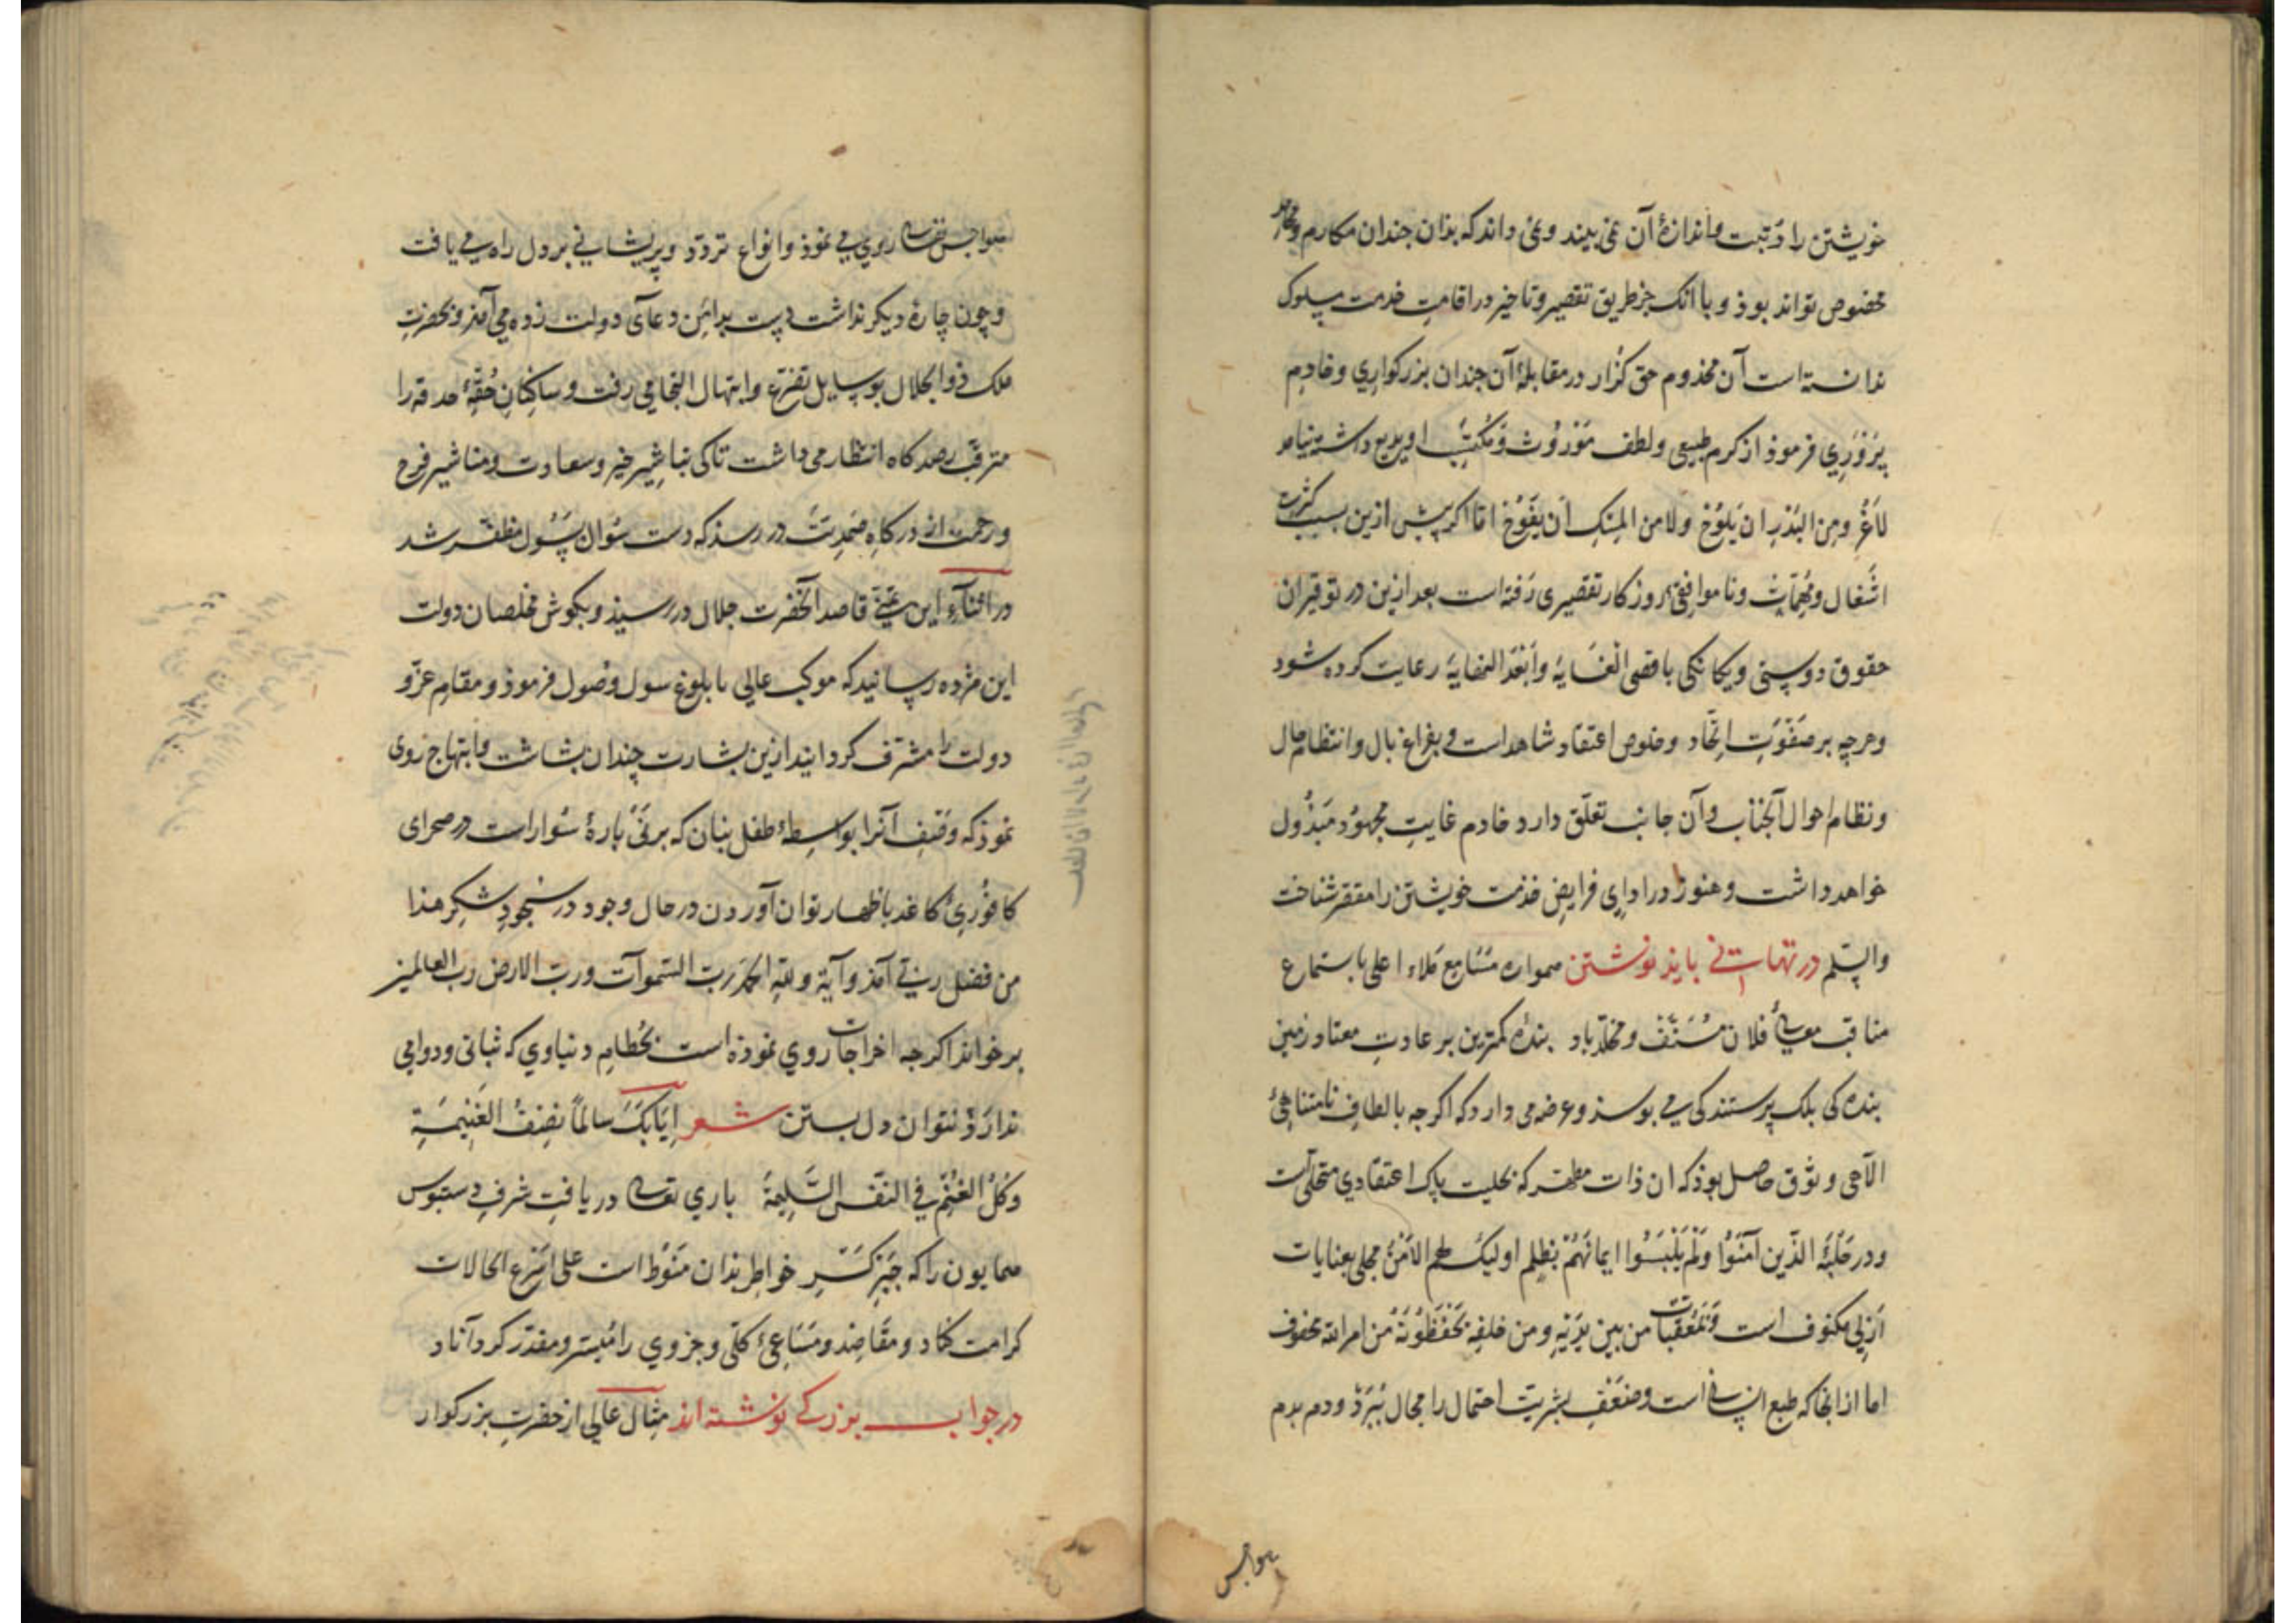 خویشتن را رتبت و اندازهٔ آن نمی بیند و نمی داند که بذان جندان مکارم و محامد
مخصوص تواند بوذ و با آنک جز طریق تقصیر و تاخیر در اقامت خدمت مسلوک
ندانسته است آن مخذوم حق کزار در مقابلهٔ آن جندان بزرکواری و خادم
پَرْوَرِی فرموذ از کرم طبیعی و لطف مَوْرُوث و مُکْتَسَب او بدیع داشته نیامد
لَاغَرْوَ مِن البَدْرِ ان یَلُوْحَ ولا من المِسْکِ اَن یَفُوْحَ امّا اکر پیش ازین بسبب کثرت
اشْغال و مُهِمّاتْ و ناموافقیٔ روزکار تقصیری رَفته است بعد ازین در توقیر ان
حقوق دوستی و یکانکی باقصی الغَایَه وَابْعَدَ النهایَه رعایت کرده شود
و هرچه بر صَفْوَتِ اتّحاد و خلوص اعتقاد شاهد است و بفراغ بال و انتظام حال
و نظام احوال آنجناب و آن جانب تعلّق دارد خادم غایتِ مجهوُد مَبْذُول
خواهد داشت و هنوز در اداءِ فرایض خدمت خویشتن را مقصّر شناخت
والسّلم در تهانی بایذ نوشتن همواره مَسَامِع مَلاء اعلی باستماع
مناقب فلان مُشَنَّف و مخلّد باد بنده کمترین بر عادتِ معتاد زمین
بنده کی بلک پرستندکی می بوسذ و عرضه می دارد که اکرجه بالطافِ نامتناهیٔ
الآهی وثوق حاصل بوذ که ان ذات مطهر که بحلیت پاک اعتقادی متحلّی است
و در حَلْبَهٔ الّذین آمَنُوْا وَلَمْ یَلْبَسُوا ایمانَهُمْ بظلم اولیکَ لهم الاَمْنُ مجلی بعنایات
اَزَلی مکنوف است و مُعَقّبات من بین یَدَیْهِ و من خلفِه یَحْفَظُوْنَهُ من امر الله محفوف
اما از انجا که طبع انسانی است و ضعْفِ بشریت احتمال را مجال نَبَرَذ و دم بدم
هواجس
هواجس نفسانی روی می نموذ و انواع تردّد و پریشانی بر دل راه می یافت
و چون چارهٔ دیکر نداشت دست بدامَن دعآی دولت زده می آمذ و بحضرت
ملک ذو الجلال بوسایل تضرّع و ابتهال التجا می رفت و ساکِنانِ حُقّهٔ حدقه را
مترقّب رصدکاه انتظار می داشت تا کی تباشیر خیر و سعادت و مناشیر فرح
و رحمت از درکاهِ صَمَدِیَّتْ در رسذ که دست سُوال بسُوْل مظفّر شد
در اثنآءِ این قاصد آنحضرت جلال در رسیذ و بکوش مخلصان دولت
این مژده رسانید که موکب عالی با بلوغ سول وصُول فرموذ و مقام عزّ و
دولت را مشرّف کردانید ازین بشارت چندان بشاشت و ابتهاج روی
نموذ که وصف آنرا بواسطهٔ طفل بنان که بر نَیْ بارهٔ سُوار است در صحرای
کافُوْریٔ کاغد باظهار توان آوردن در حال وجود در سُجُودِ شکر هذا
من فضل ربّی آمذ و آیهٔ و للّهِ الحمدُ ربّ السّموآت و ربّ الارض ربّ العالمین
برخواند اکرچه اخراجات روی نموذه است بحُطام دنیاوی که ثباتی و دوامی
ندارَذ نتوان دل بستن شعر اِیَابُکَ سالماً نصْفُ الغَنِیْمَةِ
وَکُلُّ الغُنْم فی النَفْس السَّلِیْمَةِ باری تعالی دریافتِ شرفِ دستبوس
همایون را که جَبْرِ کَسْرِ خواطر بذان مَنُوْط است علی اسْرع الحالات
کرامت کناد و مَقَاصِد و مَسَاعیٔ کلّی و جزوی را میُسّر و مقدّر کرداناد
در جواب بزرکی نوشته اند مثالْ عالی از حضرتِ بزرکوار